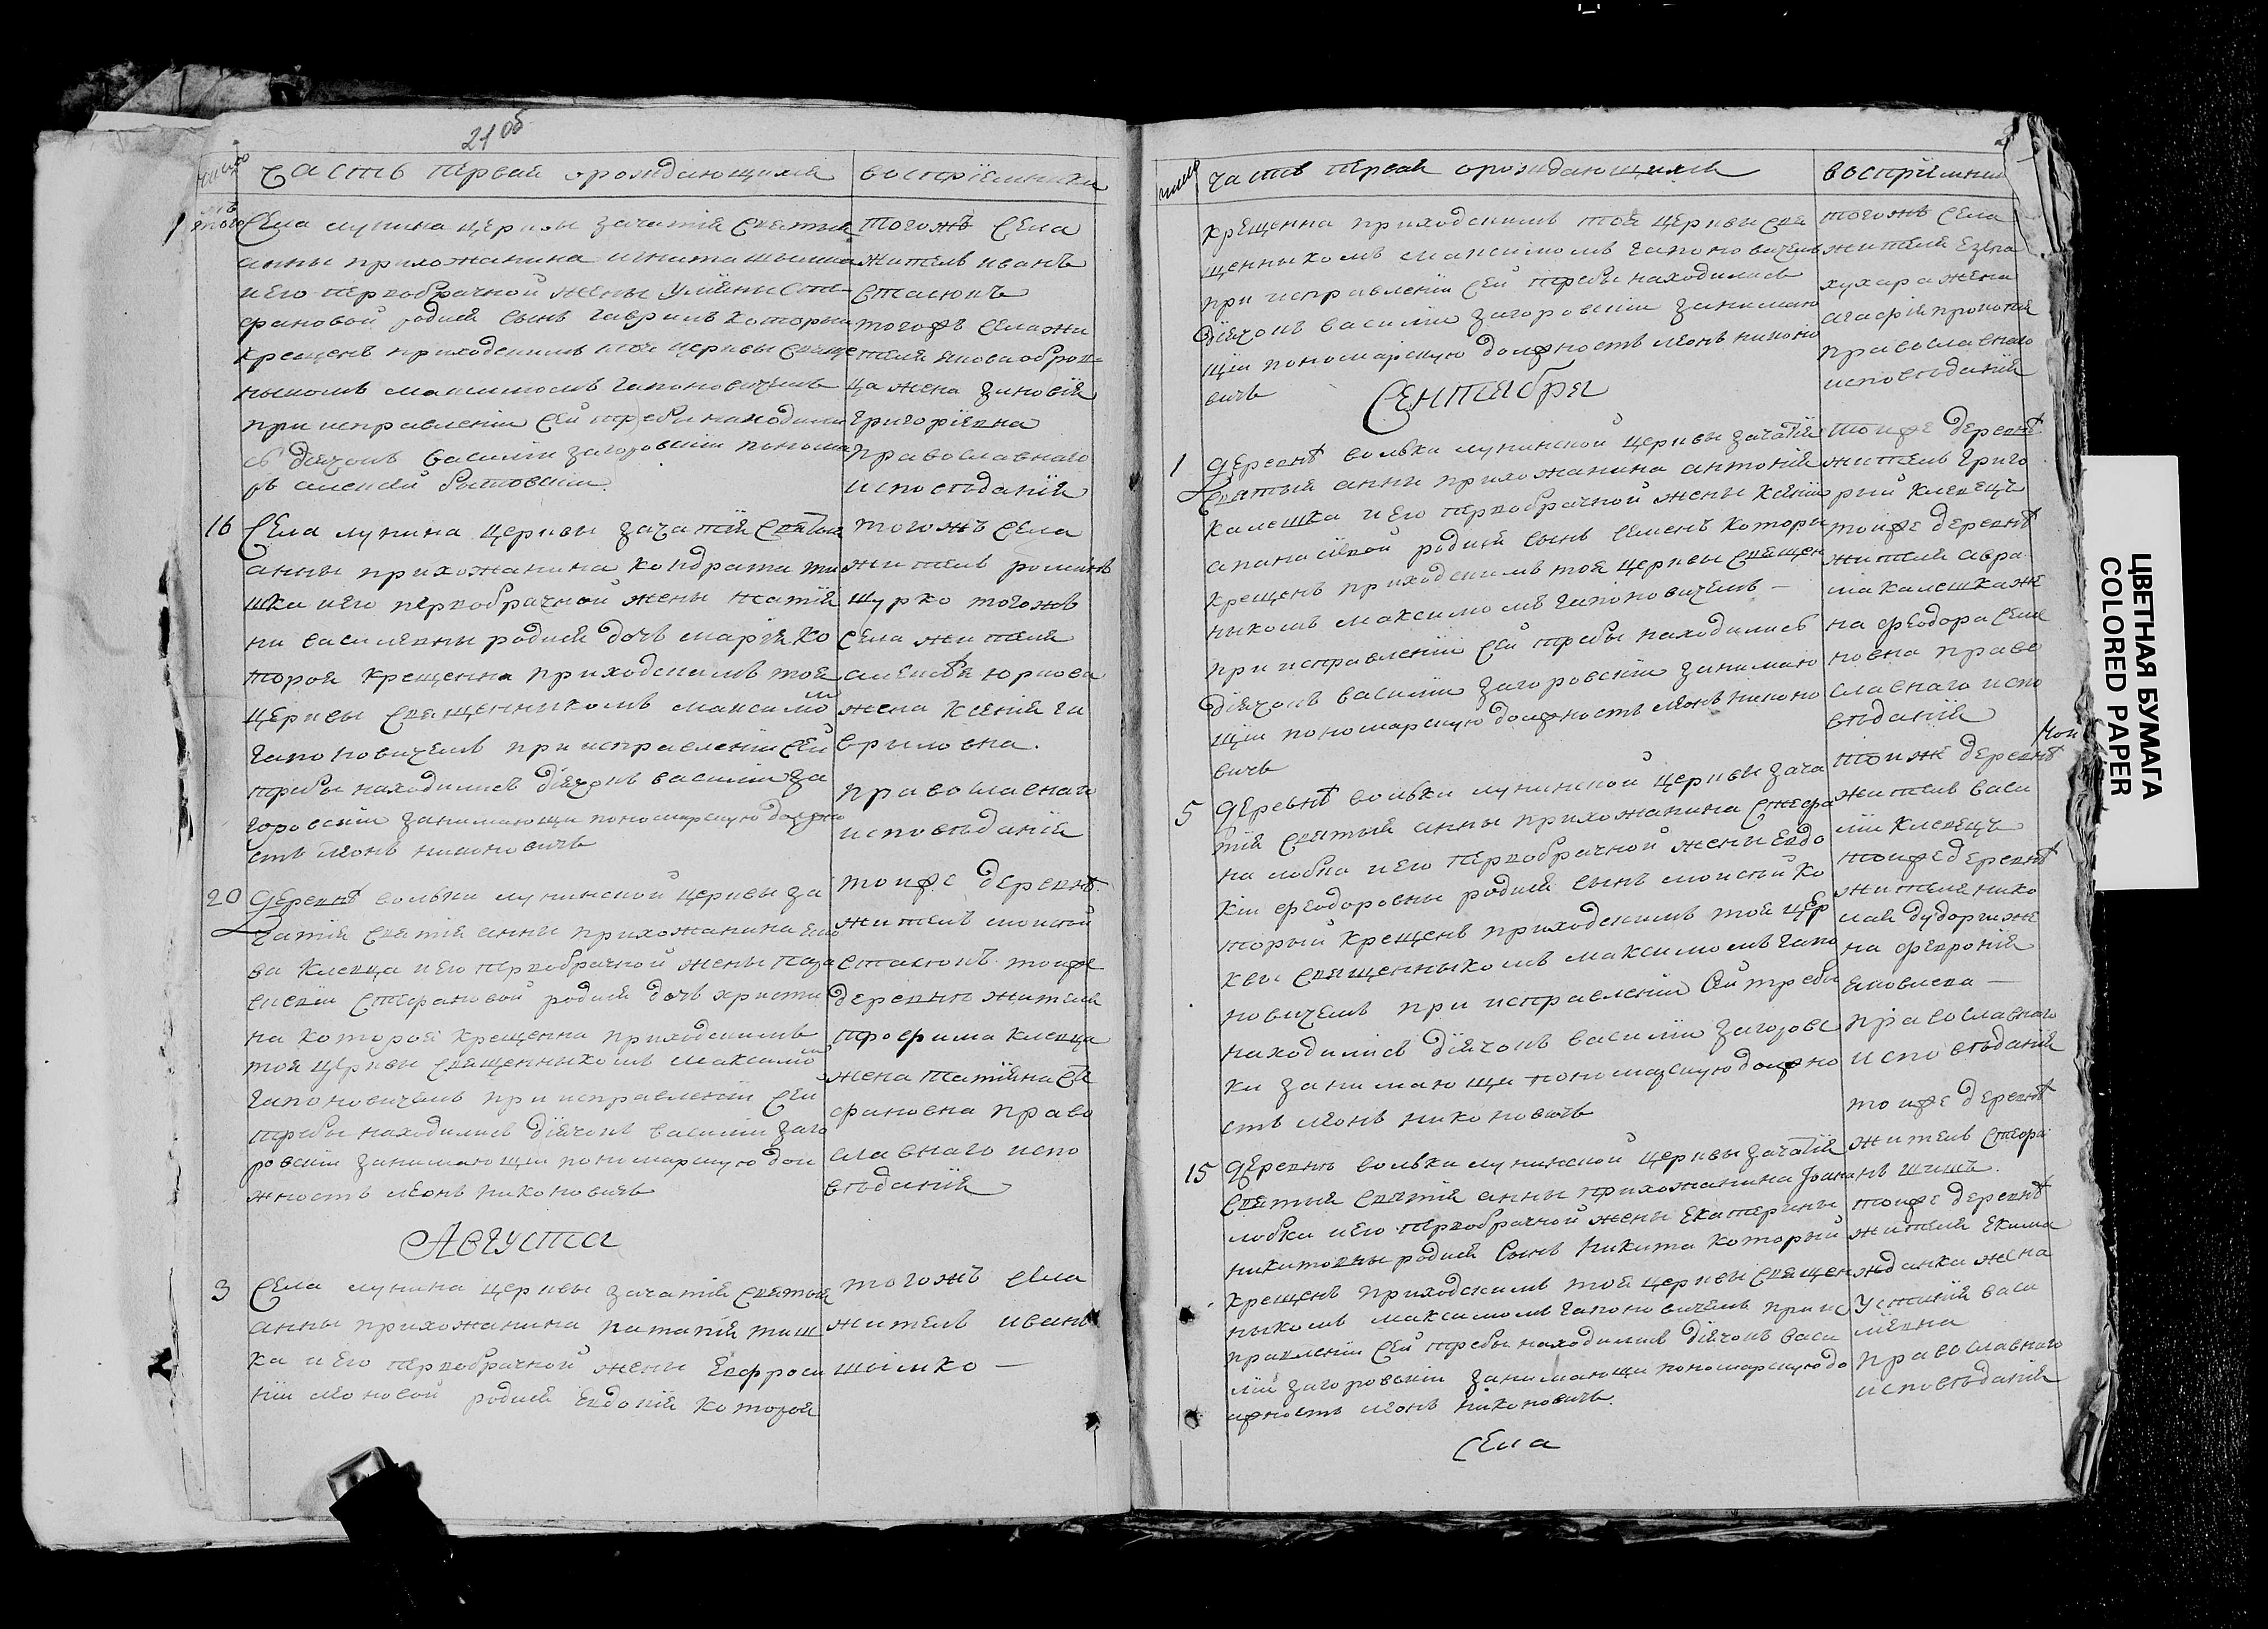 21 об
число
часть первая ораждающихся
восприемники
Села лунина церквы зачатія святыя
анны прихожанина игната
и его первобрачной жены Улияни сте
фановой родися сынъ гаврилъ которы
крещенъ приходскимъ тоя церквы свяще
ныкомъ максимомъ гапоновичемъ
при исправленіи сей требы находили
сь діячокъ василіи загоровскіи понома
рь алексей
тогожъ села
житель иванъ
стасюкъ
тогожъ села жи
теля якова
ца жена зиновія
григоріевна
православнаго
исповѣданія
16
Села лунина церквы зачатія святыя
анны прихожанина кондрата ти
шка и его первобрачной жены
ни василевны родися дочь марія ко
торая крещенна приходскимъ тоя
церквы священникомъ максимо м
гапоновичемъ при исправленіи сей
требы находились діячокъ василіи за
горовскіи занимающи пономарскую должно
сть леонъ никоновичъ
тогожъ села
житель романъ
щурко тогожъ
села жителя
алексѣя юркова
жена ксенія га
вриловна.
православнаго
исповѣданія
20
Деревнѣ волька лунинской церквы за
чатія святія анны прихожанина
ва клевца и его первобрачной жены пара
скевіи стефановой родися дочь христи
на которая крещенна приходскимъ
тоя церквы священникомъ максимо м
гапоновичемъ при исправленіи сеи
требы находились діячокъ василіи заго
ровскіи занимающіи пономарскую дол
жность леонъ никоновичъ
тоижъ деревнѣ
житель моисей
стасюкъ тоиже
деревнѣ жителя
трофима клевца
жена татіяна сте
фановна право
славнаго испо
вѣданія
Августа
3
Села лунина церквы зачатія святыя
анны прихожанина патапія тиш
ка и его первобрачной жены Евфроси
ніи леоновой родися Евдокія которая
тогожъ села
житель иванъ
шымко —
число
часть первая ораждающихся
восприемни
крещенна приходскимъ тоя церквы свя
щенныкомъ максимомъ гапоновичемъ
при исправленіи сей требы находились
діячокъ василіи загоровскіи занимаю
щіи пономарскую должность леонъ никоно
вичъ
тогожъ села
жителя
кухара жена
агафія прокопія
православнаго
исповѣданія
Сентября
1
Деревнѣ волька лунинской церквы зачатія
святыя анны прихожанина антонія
калешка и его первобрачной жены ксеніи
апанасіевой родися сынъ семенъ которы
крещенъ приходскимъ тоя церквы священ
никомъ максимомъ гапоновичемъ —
при исправленіи сей требы находились
діячокъ василіи загоровскіи занимаю
щіи пономарскую должность леонъ никоно
вичъ
тоиже деревнѣ
житель григо
рий клевецъ
тоиже деревнѣ
жителя авра
ма калешка же
на феодора семе
новна право
славнаго испо
вѣданія
5
Деревнѣ волька лунинской церквы зача
тія святыя анны прихожанина стефа
на лобка и его первобрачной жены евдо
кіи феодоровны родися сынъ моисей ко
торый крещенъ приходскимъ тоя цер
квы священныкомъ максимомъ гапо
новичемъ при исправленіи сей требы
находились діячокъ василіи загоровс
ки занимающи пономарскую должно
сть леонъ никоновичъ
тоиже деревнѣ
житель васи
ліи клевецъ
тоиже деревнѣ
жителя нико
лая дударги же
на феврония
яковлева —
православнаго
исповѣданія
15
Деревнѣ волька лунинской церквы зачатія
святыя святія анны прихожанина Іоана
лобка и его первобрачной жены Екатерины
никитовны родися сынъ Никита который
крещенъ приходскимъ тоя церквы священ
ныкомъ максимомъ гапоновичемъ при ис
правленіи сей требы находились діячокъ васи
лій загоровскіи занимающи пономарскую до
лжность леонъ никоновичъ.
тоиже деревнѣ
житель стефа
нъ шишъ.
тоиже деревнѣ
жителя екима
жданка жена
Устиния васи
лiевна
православнаго
исповѣданія
Села
ЦВЕТНАЯ БУМАГА
COLORED PAPER